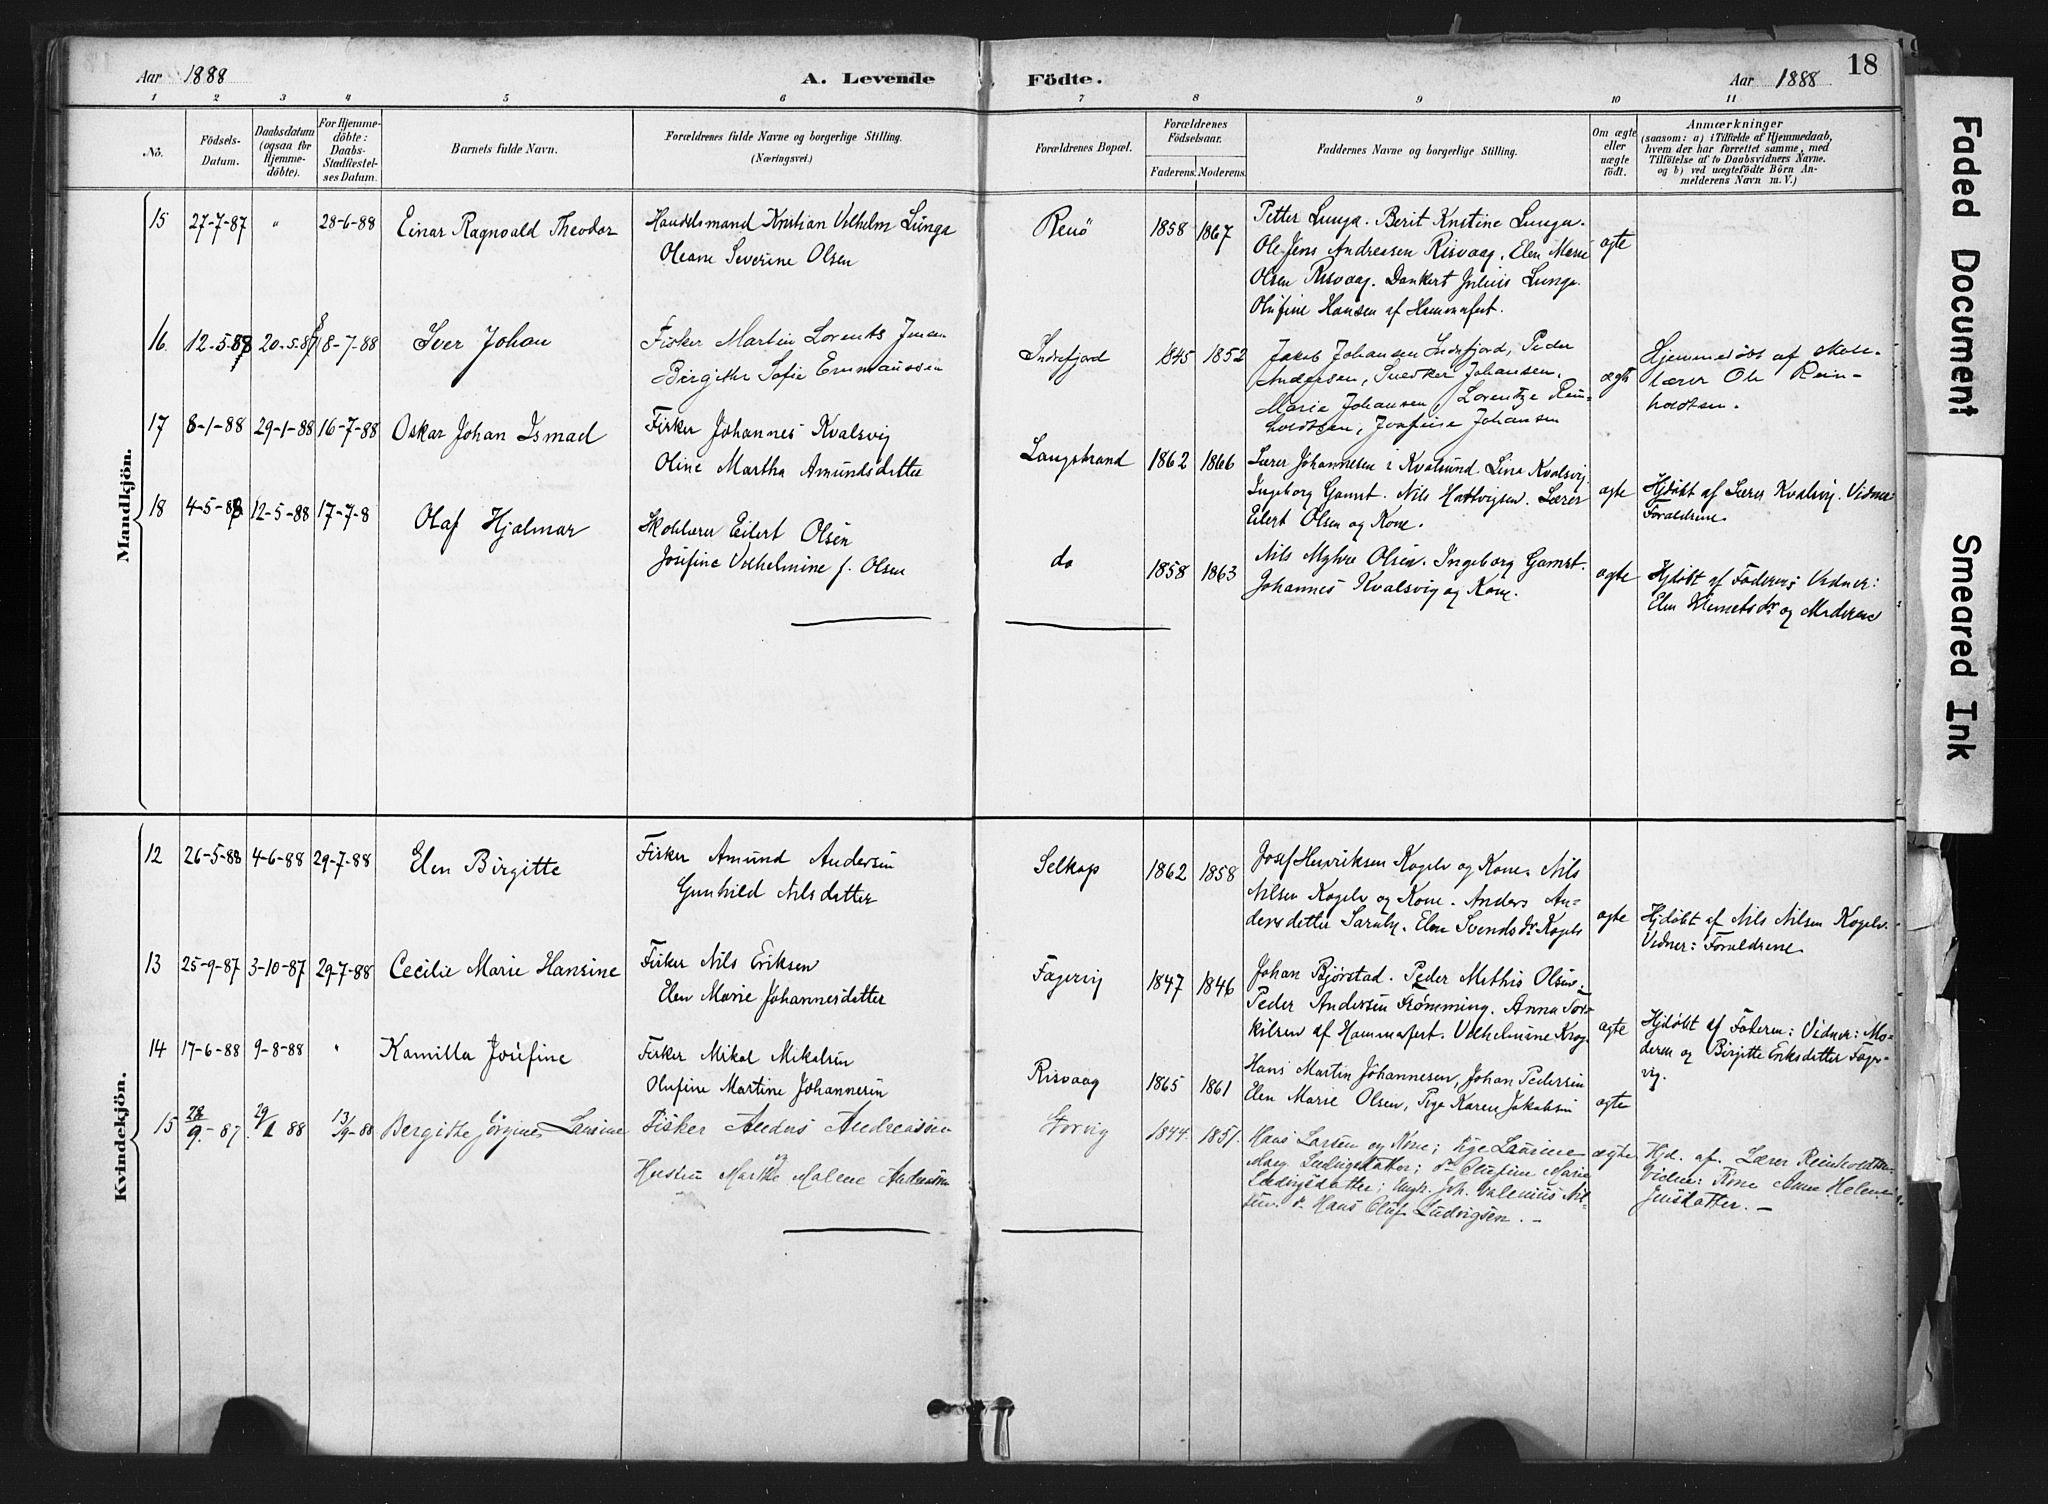 Aar 1888
A. Levende
Födte.
Aar 1888
18
1 2 3 4 5 6 7 8 9 10 11
No.
Födsels-
Datum.
Daabsdatum
(ogsaa for
Hjemme-
döbte).
For Hjemme-
döbte:
Daabs-
Stadfæstel-
ses Datum.
Barnets fulde Navn.
Forældrenes fulde Navne og borgerlige Stilling.
(Næringsvei.)
Forældrenes Bopæl.
Forældrenes
Födselsaar.
Faderens. Moderens.
Faddernes Navne og borgerlige Stilling.
Om ægte
eller
uægte
födt.
Anmærkninger
(saasom: a) i Tilfælde af Hjemmedaab,
hvem der har forrettet samme, med
Tilföielse af to Daabsvidners Navne.
og b) ved uægtefödte Börn An-
melderens Navn m. V.)
Mandkjön.
15 27-7-87 " 28-6-88 Einar Ragnvald Theodor
Handelsmand Kristian Vilhelm Lunga
Oleane Severine Olsen
Renö 1858 1867
Petter Lunga. Berit Kristine Lunga.
Ole Jens Andreasen Risvaag, Elen Marie
Olsen Risvaag. Dankert Julius Lunga.
Olufine Hansen af Hammerfest.
ægte
16. 12-5-87 20-5-87 8-7-88 Iver Johan
Fisker Martin Lorents
Birgithe Sofie Emmaussen
Indrefjord 1845 1852
Jakob Johansen Indrefjord, Peder
Andersen, Johansen,
Marie Johansen, Lorentze Rein-
holdtsen, Josefine Johansen
ægte
Hjemmedöbt af Skole-
lærer Ole Rein-
holdtsen.
17 8-1-88 29-1-88 16-7-88 Oskar Johan Ismael
Fisker Johannes Kvalsvig
Oline Martha Amundsdatter
Langstrand 1862 1866
Lærer Johannesen i Kvalsund. Lina Kvalsvig.
Ingeborg Gamst. Nils Hartvigsen. Lærer
Eilert Olsen og Kone.
ægte
Hjdöbt af Lærer Kvalsvig. Vidner
Forældrene.
18 4-5-88 12-5-88 17-7-8 Olaf Hjalmar
Skolelærer Eilert Olsen
Josefine Vilhelmine f. Olsen
do 1858 1863
Nils Myhre Olsen. Ingeborg Gamst.
Johannes Kvalsvig og Kone.
ægte
Hjdöbt af Faderen; Vidner:
Elen Klemetsdr og Moderen
Kvindekjön.
12 26-5-88 4-6-88 29-7-88 Elen Birgitte
Fisker Amund Andersen
Gunhild Nilsdatter
Selkop 1862 1858
Josef Henriksen Kogelv og Kone. Nils
Nilsen Kogelv og Kone. Anders An-
dersdatter Saraby. Elen Svendsdr Kogelv
ægte
Hjdöbt af Nils Nilsen Kogelv.
Vidner: Forældrene
13 25-9-87 3-10-87 29-7-88 Cecilie Marie Hansine
Fisker Nils Eriksen
Elen Marie Johannesdatter
Fagervig 1847 1846
Johan Bjørstad. Peder Mathis Olsen.
Peder Andersen Frømming. Anna Tor-
kilsen af Hammerfest. Vilhelmine Krog.
ægte
Hjdöbt af Faderen: Vidner: Mo-
deren og Birgitte Eriksdatter Fager-
vig.
14 17-6-88 9-8-88 " Kamilla Josefine
Fisker Mikal Mikalsen
Olufine Martine Johannesen
Risvaag 1865 1861
Hans Martin Johannesen, Johan Pedersen
Elen Marie Olsen, Pige Karen Jakobsen
ægte
15 28/9-87 29/1 88 13/9-88 Bergithe Jörgine Laurine
Fisker Anders Andreassen
Hustru Marthe Malene Andreassen
Storvig 1844. 1851.
Hans Larsen og Kone; Pige Laurine
Marg. Ludvigsdatter; do Olufine Marie
Ludvigsdatter; Ungk. Joh. Valenius Nil-
sen. do Hans Oluf Ludvigsen. —
ægte
Hjd. af. Lærer Reinholdtsen
Vidner: Kone Anne Helene
Jensdatter. —
Faded Document
Smeared Ink